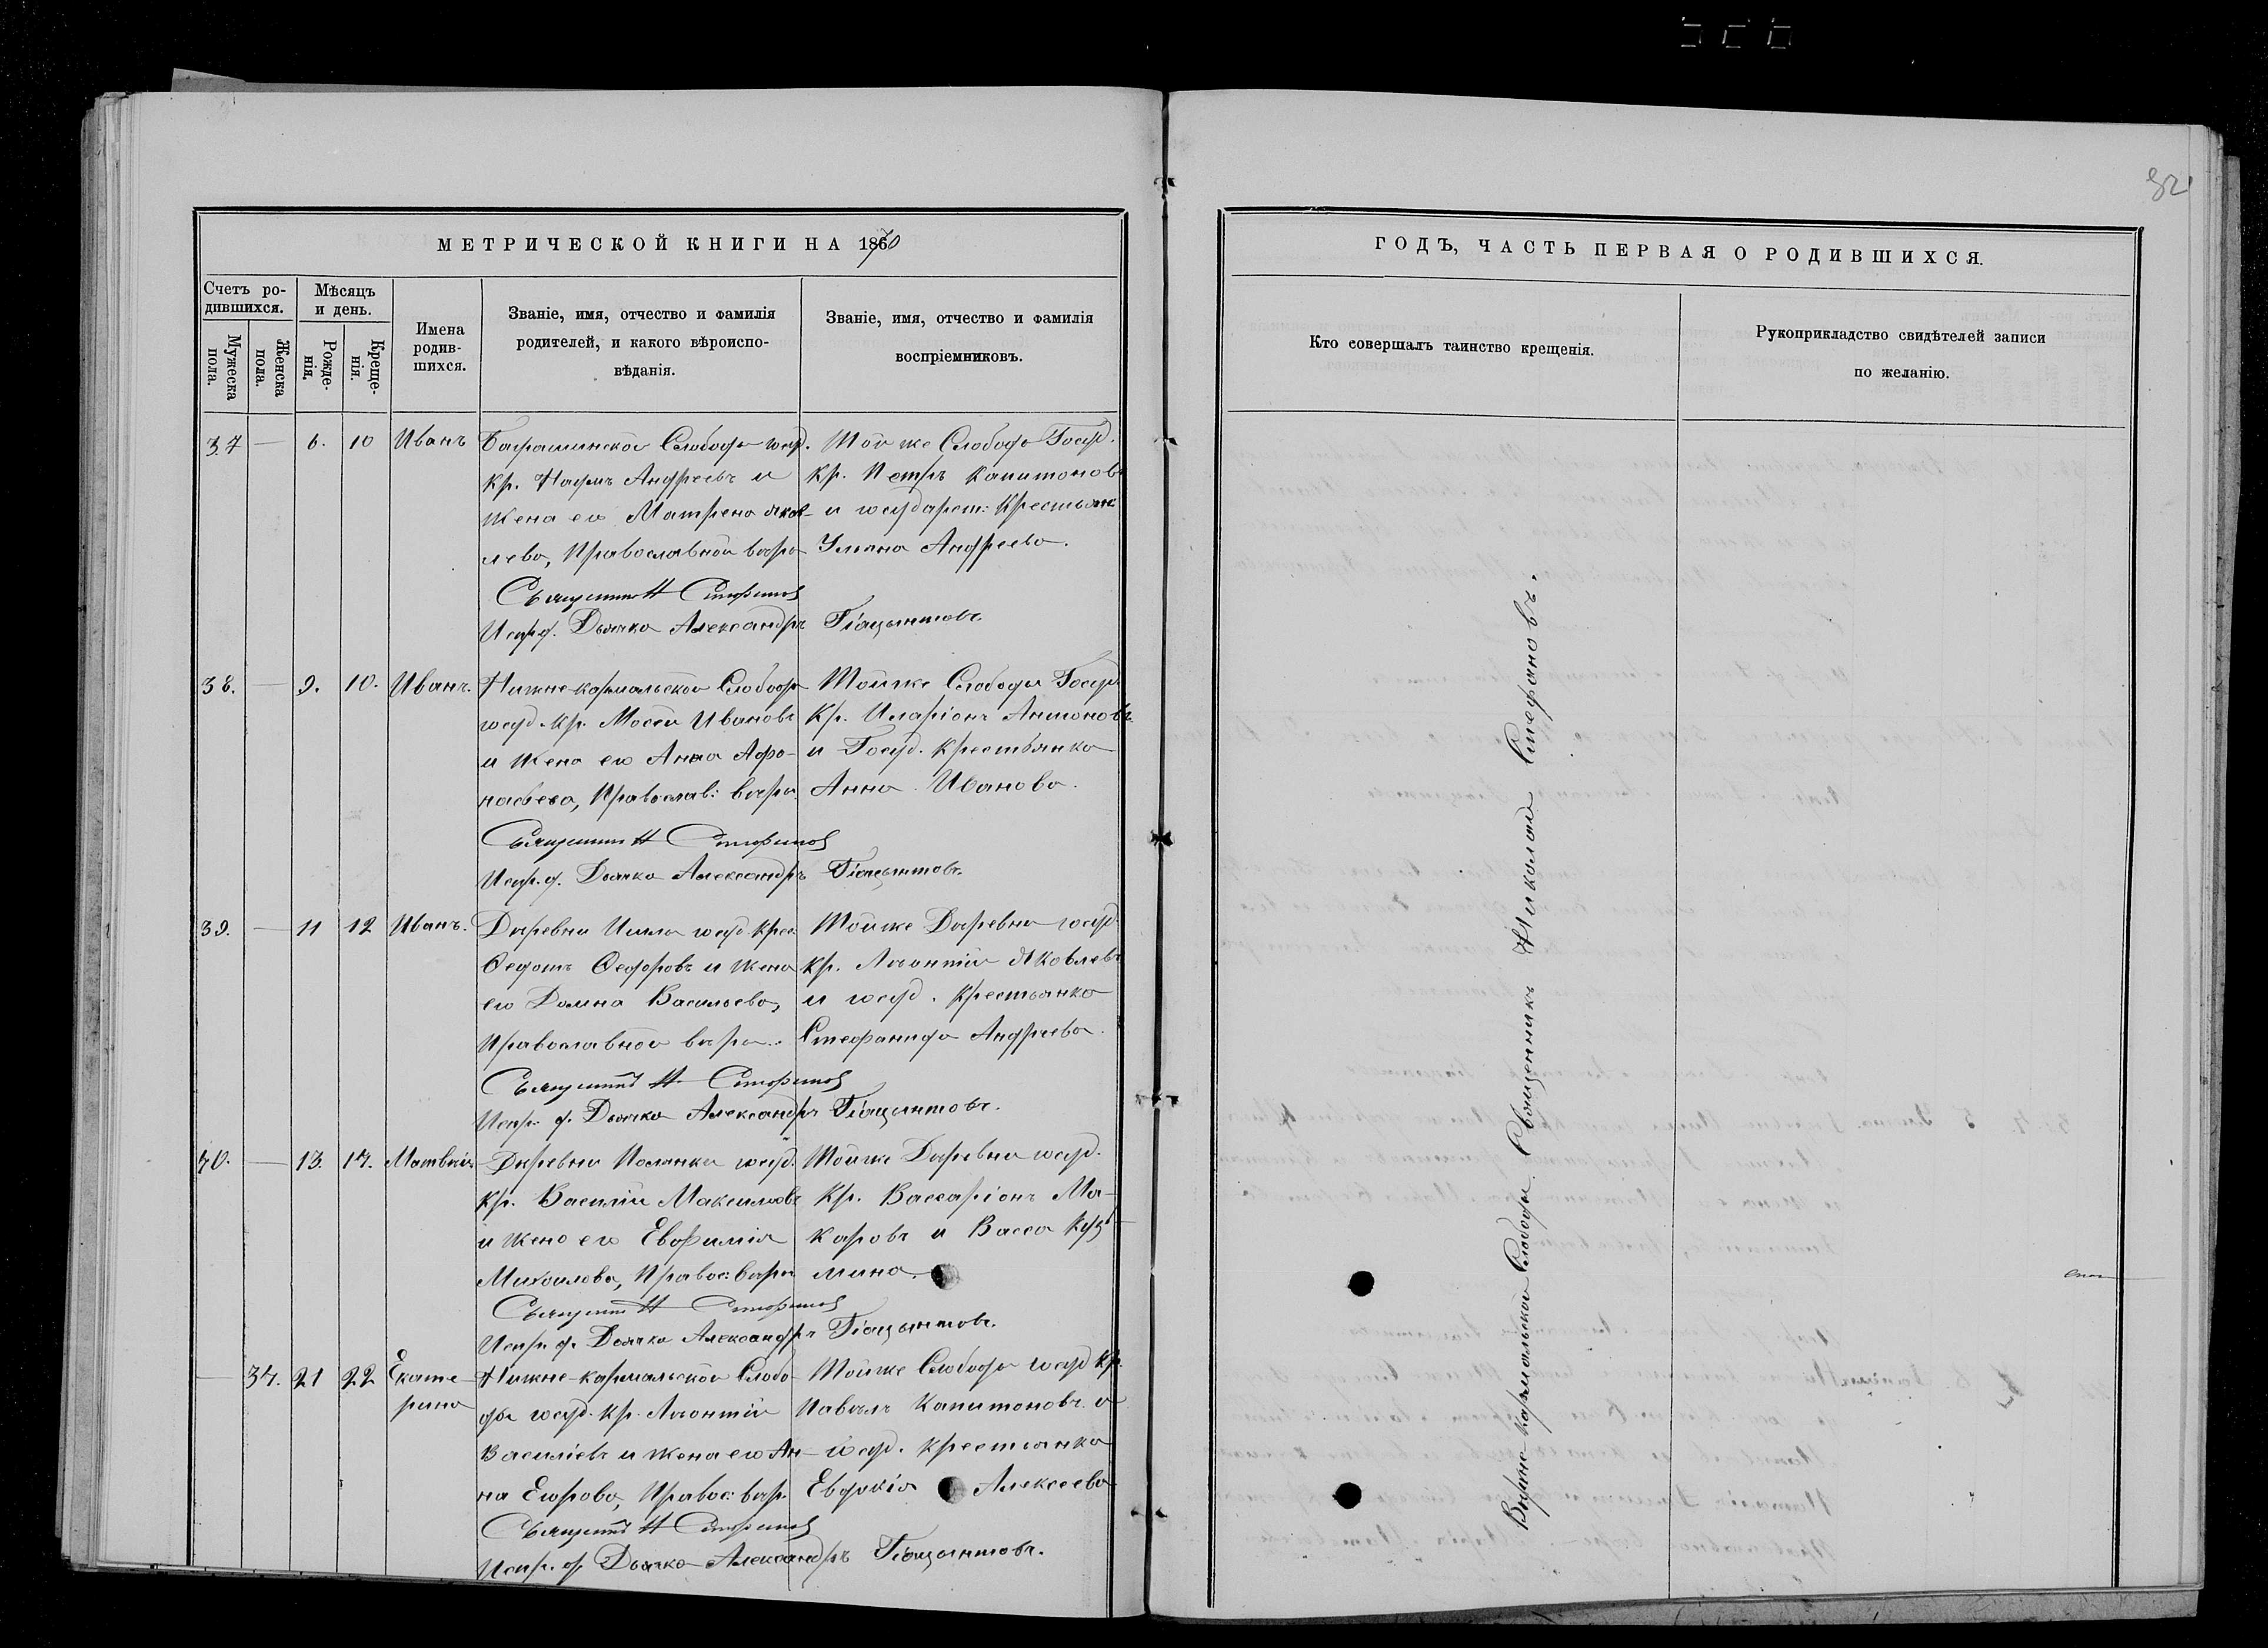 82
МЕТРИЧЕСКОЙ КНИГИ НА 1870
Счетъ ро-
дившихся.
Мужеска
пола.
Женска
пола.
Мѣсяцъ
и день.
Рожде-
нія.
Креще-
нія.
Имена
родив-
шихся.
Званіе, имя, отчество и фамилія
родителей, и какого вѣроиспо-
вѣданія.
Званіе, имя, отчество и фамилія
воспріемниковъ.
37 — 6. 10 Иванъ
Слободы госуд.
кр. Наумъ Андреевъ и
жена его Матрена Яков-
лева, Православной вѣры
Тойже Слободы Госуд.
кр. Петръ Капитоновъ
и государст: крестьян
Ульяна Андреева.
Священникъ Н Стефановъ
Испр. д. Дьячка Александръ Гіацынтовъ
38. — 9. 10. Иванъ.
Нижне-кармальской Слободы
госуд. кр. Мосей Ивановъ
и жена его Анна Афо-
насьева, Православ: вѣры.
Тойже Слободы Госуд.
кр. Иларіонъ Антоновъ
и Госуд. крестьянка
Анна Иванова.
Священникъ Н Стефановъ
Испр. д. Дьячка Александръ Гіацынтовъ.
39. — 11 12 Иванъ.
Деревни Ишла госуд. крес.
Ѳедотъ Ѳедоровъ и жена
его Домна Васильева,
Православной вѣры.
Тойже Деревни госуд.
кр. Леонтій Яковлевъ
и госуд. крестьянка
Стефанида Андреева.
Священникъ Н. Стефановъ
Испр. д. Дьячка Александръ Гіацынтовъ.
40. — 13. 14. Матвѣй
Деревни Полянки госуд.
кр. Василій Максимовъ
и жена его Евфимія
Михаилова, Правос: вѣры
Тойже Деревни госуд.
кр. Вассаріонъ Ма-
каровъ и Васса Куз-
мина.
Священникъ Н Стефановъ
Испр. д. Дьячка Александръ Гіацынтовъ.
— 34. 21 22 Екате-
рина
Нижне-кармальской Слобо-
ды госуд. кр. Леонтій
Василіевъ и жена его Ан-
на Егорова, Правос: вѣр.
Тойже Слободы госуд кр.
Павелъ Капитоновъ и
госуд. крестьянка
Евдокія Алексеева
Священникъ Н Стефановъ
Испр. д. Дьячка Александръ Гіацынтовъ.
ГОДЪ, ЧАСТЬ ПЕРВАЯ О РОДИВШИХСЯ.
Кто совершалъ таинство крещенія.
Рукоприкладство свидѣтелей записи
по желанію.
кармальской Слободы Священникъ Николай Стефановъ.